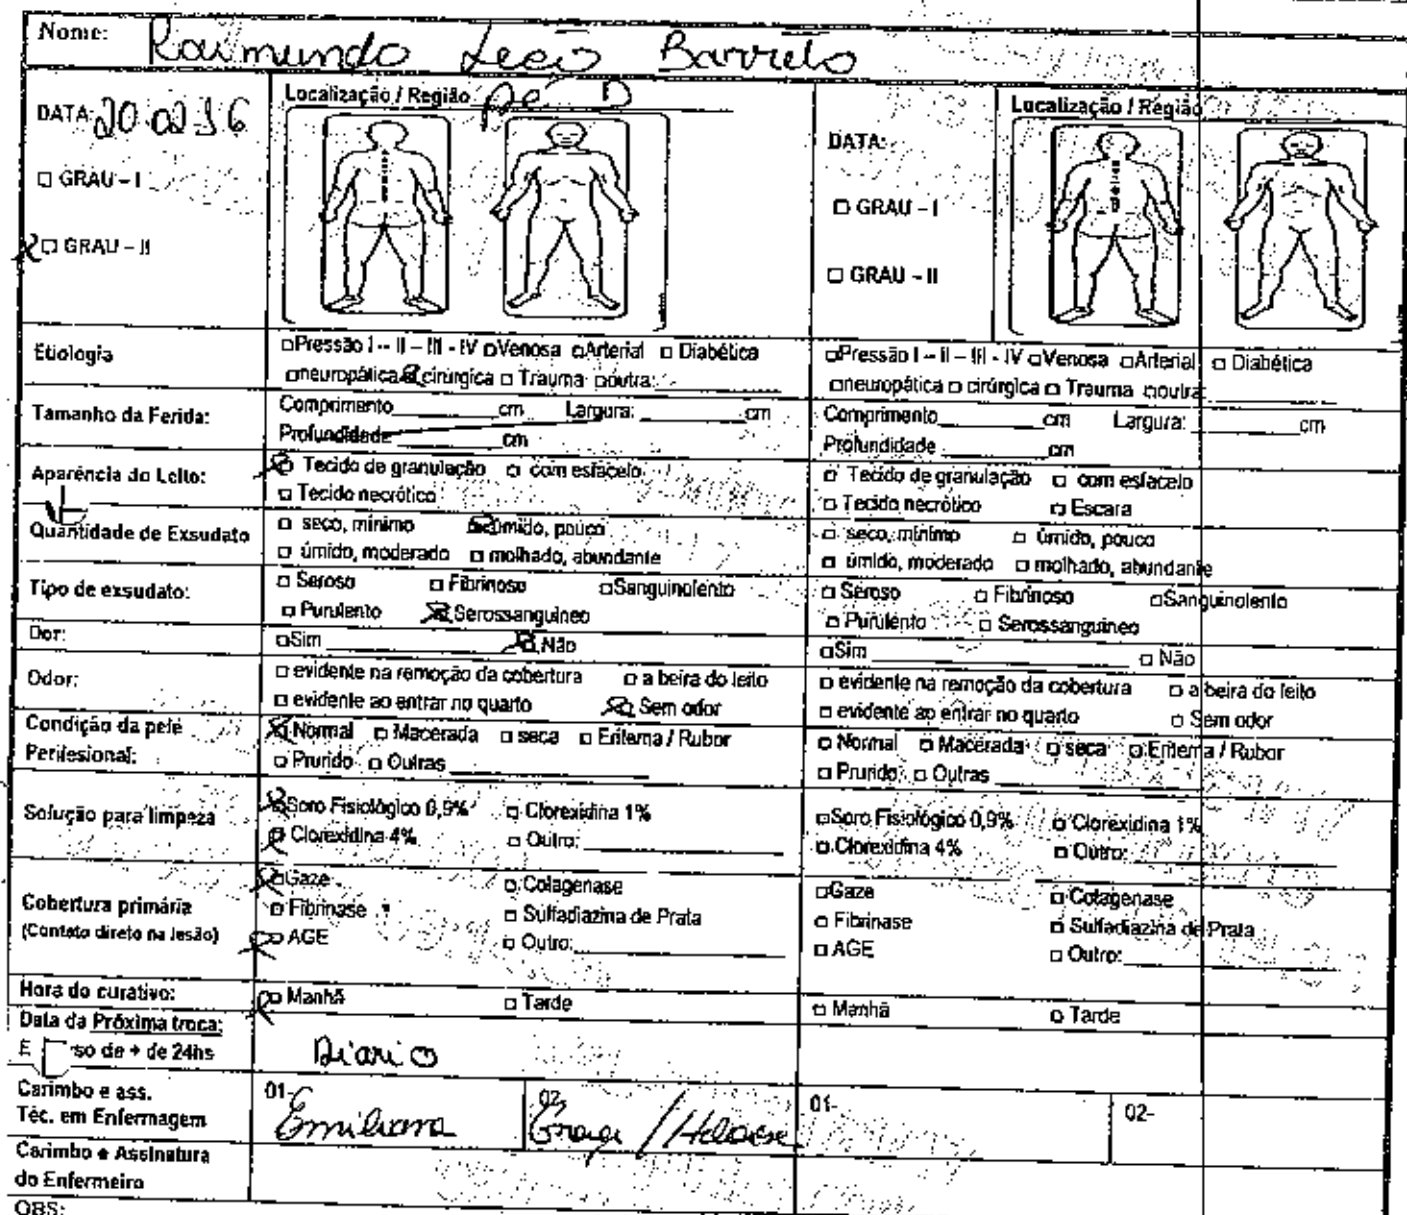 Nome: Raimundo Lecio Barreto
DATA: 20.02.16
Localização / Região Pé D
DATA:
Localização / Região
□ GRAU – I
□ GRAU – I
□ GRAU – II
□ GRAU – II
Etiologia
□Pressão I – II – III - IV □Venosa □Arterial □ Diabética
□neuropática □ cirúrgica □ Trauma □outra:
□Pressão I – II – III - IV □Venosa □Arterial □ Diabética
□neuropática □ cirúrgica □ Trauma □outra:
Tamanho da Ferida:
Comprimento______cm Largura:______cm
Profundidade______cm
Comprimento______cm Largura:______cm
Profundidade______cm
Aparência do Leito:
□ Tecido de granulação □ com esfacelo
□ Tecido necrótico
□ Tecido de granulação □ com esfacelo
□ Tecido necrótico □ Escara
Quantidade de Exsudato
□ seco, mínimo □ úmido, pouco
□ úmido, moderado □ molhado, abundante
□ seco, mínimo □ úmido, pouco
□ úmido, moderado □ molhado, abundante
Tipo de exsudato:
□ Seroso □ Fibrinoso □Sanguinolento
□ Purulento □ Serossanguineo
□ Seroso □ Fibrinoso □Sanguinolento
□ Purulento □ Serossanguineo
Dor:
□Sim □ Não
□Sim □ Não
Odor:
□ evidente na remoção da cobertura □ a beira do leito
□ evidente ao entrar no quarto □ Sem odor
□ evidente na remoção da cobertura □ a beira do leito
□ evidente ao entrar no quarto □ Sem odor
Condição da pele
Perilesional:
□ Normal □ Macerada □ seca □ Eritema / Rubor
□ Prurido □ Outras
□ Normal □ Macerada □ seca □ Eritema / Rubor
□ Prurido □ Outras
Solução para limpeza
□Soro Fisiológico 0,9% □ Clorexidina 1%
□ Clorexidina 4% □ Outro:
□Soro Fisiológico 0,9% □ Clorexidina 1%
□ Clorexidina 4% □ Outro:
Cobertura primária
(Contato direto na lesão)
□Gaze □ Colagenase
□ Fibrinase □ Sulfadiazina de Prata
□ AGE □ Outro:
□Gaze □ Colagenase
□ Fibrinase □ Sulfadiazina de Prata
□ AGE □ Outro:
Hora do curativo:
□ Manhã □ Tarde
□ Manhã □ Tarde
Data da Próxima troca:
so de + de 24hs
Diario
Carimbo e ass.
Téc. em Enfermagem
01- Emiliana
02- / Heloise
01-
02-
Carimbo e Assinatura
do Enfermeiro
OBS: